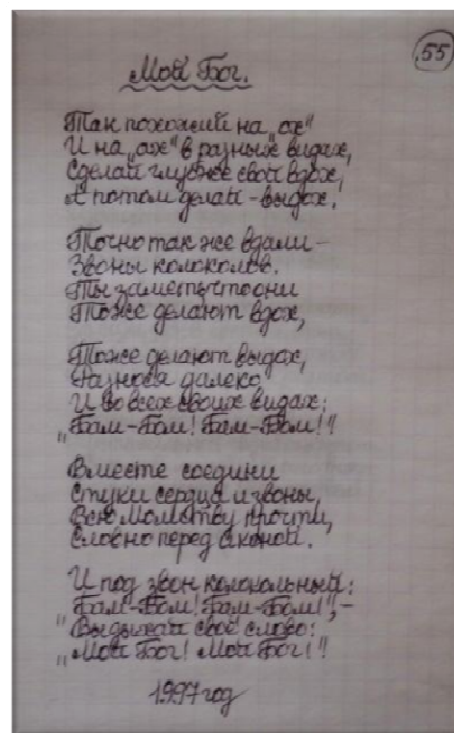 55
Мой Бог.
Так похожий на „ох"
И на „ах" в разных видах,
Сделай глубже свой вдох,
А потом делай – выдох.
Точно так же вдали –
Звоны колоколов.
Ты заметь, что они
Тоже делают вдох,
Тоже делают выдох,
Разнося далеко
И во всех своих видах:
„Бам-Бом! Бам-Бом!"
Вместе соедини
Стуки сердца и звоны,
Всю Молитву прочти,
Словно перед Иконой.
И под звон колокольный:
„Бам-Бом! Бам-Бом!", –
Выдыхай своё слово:
„Мой Бог! Мой Бог!"
1997 год